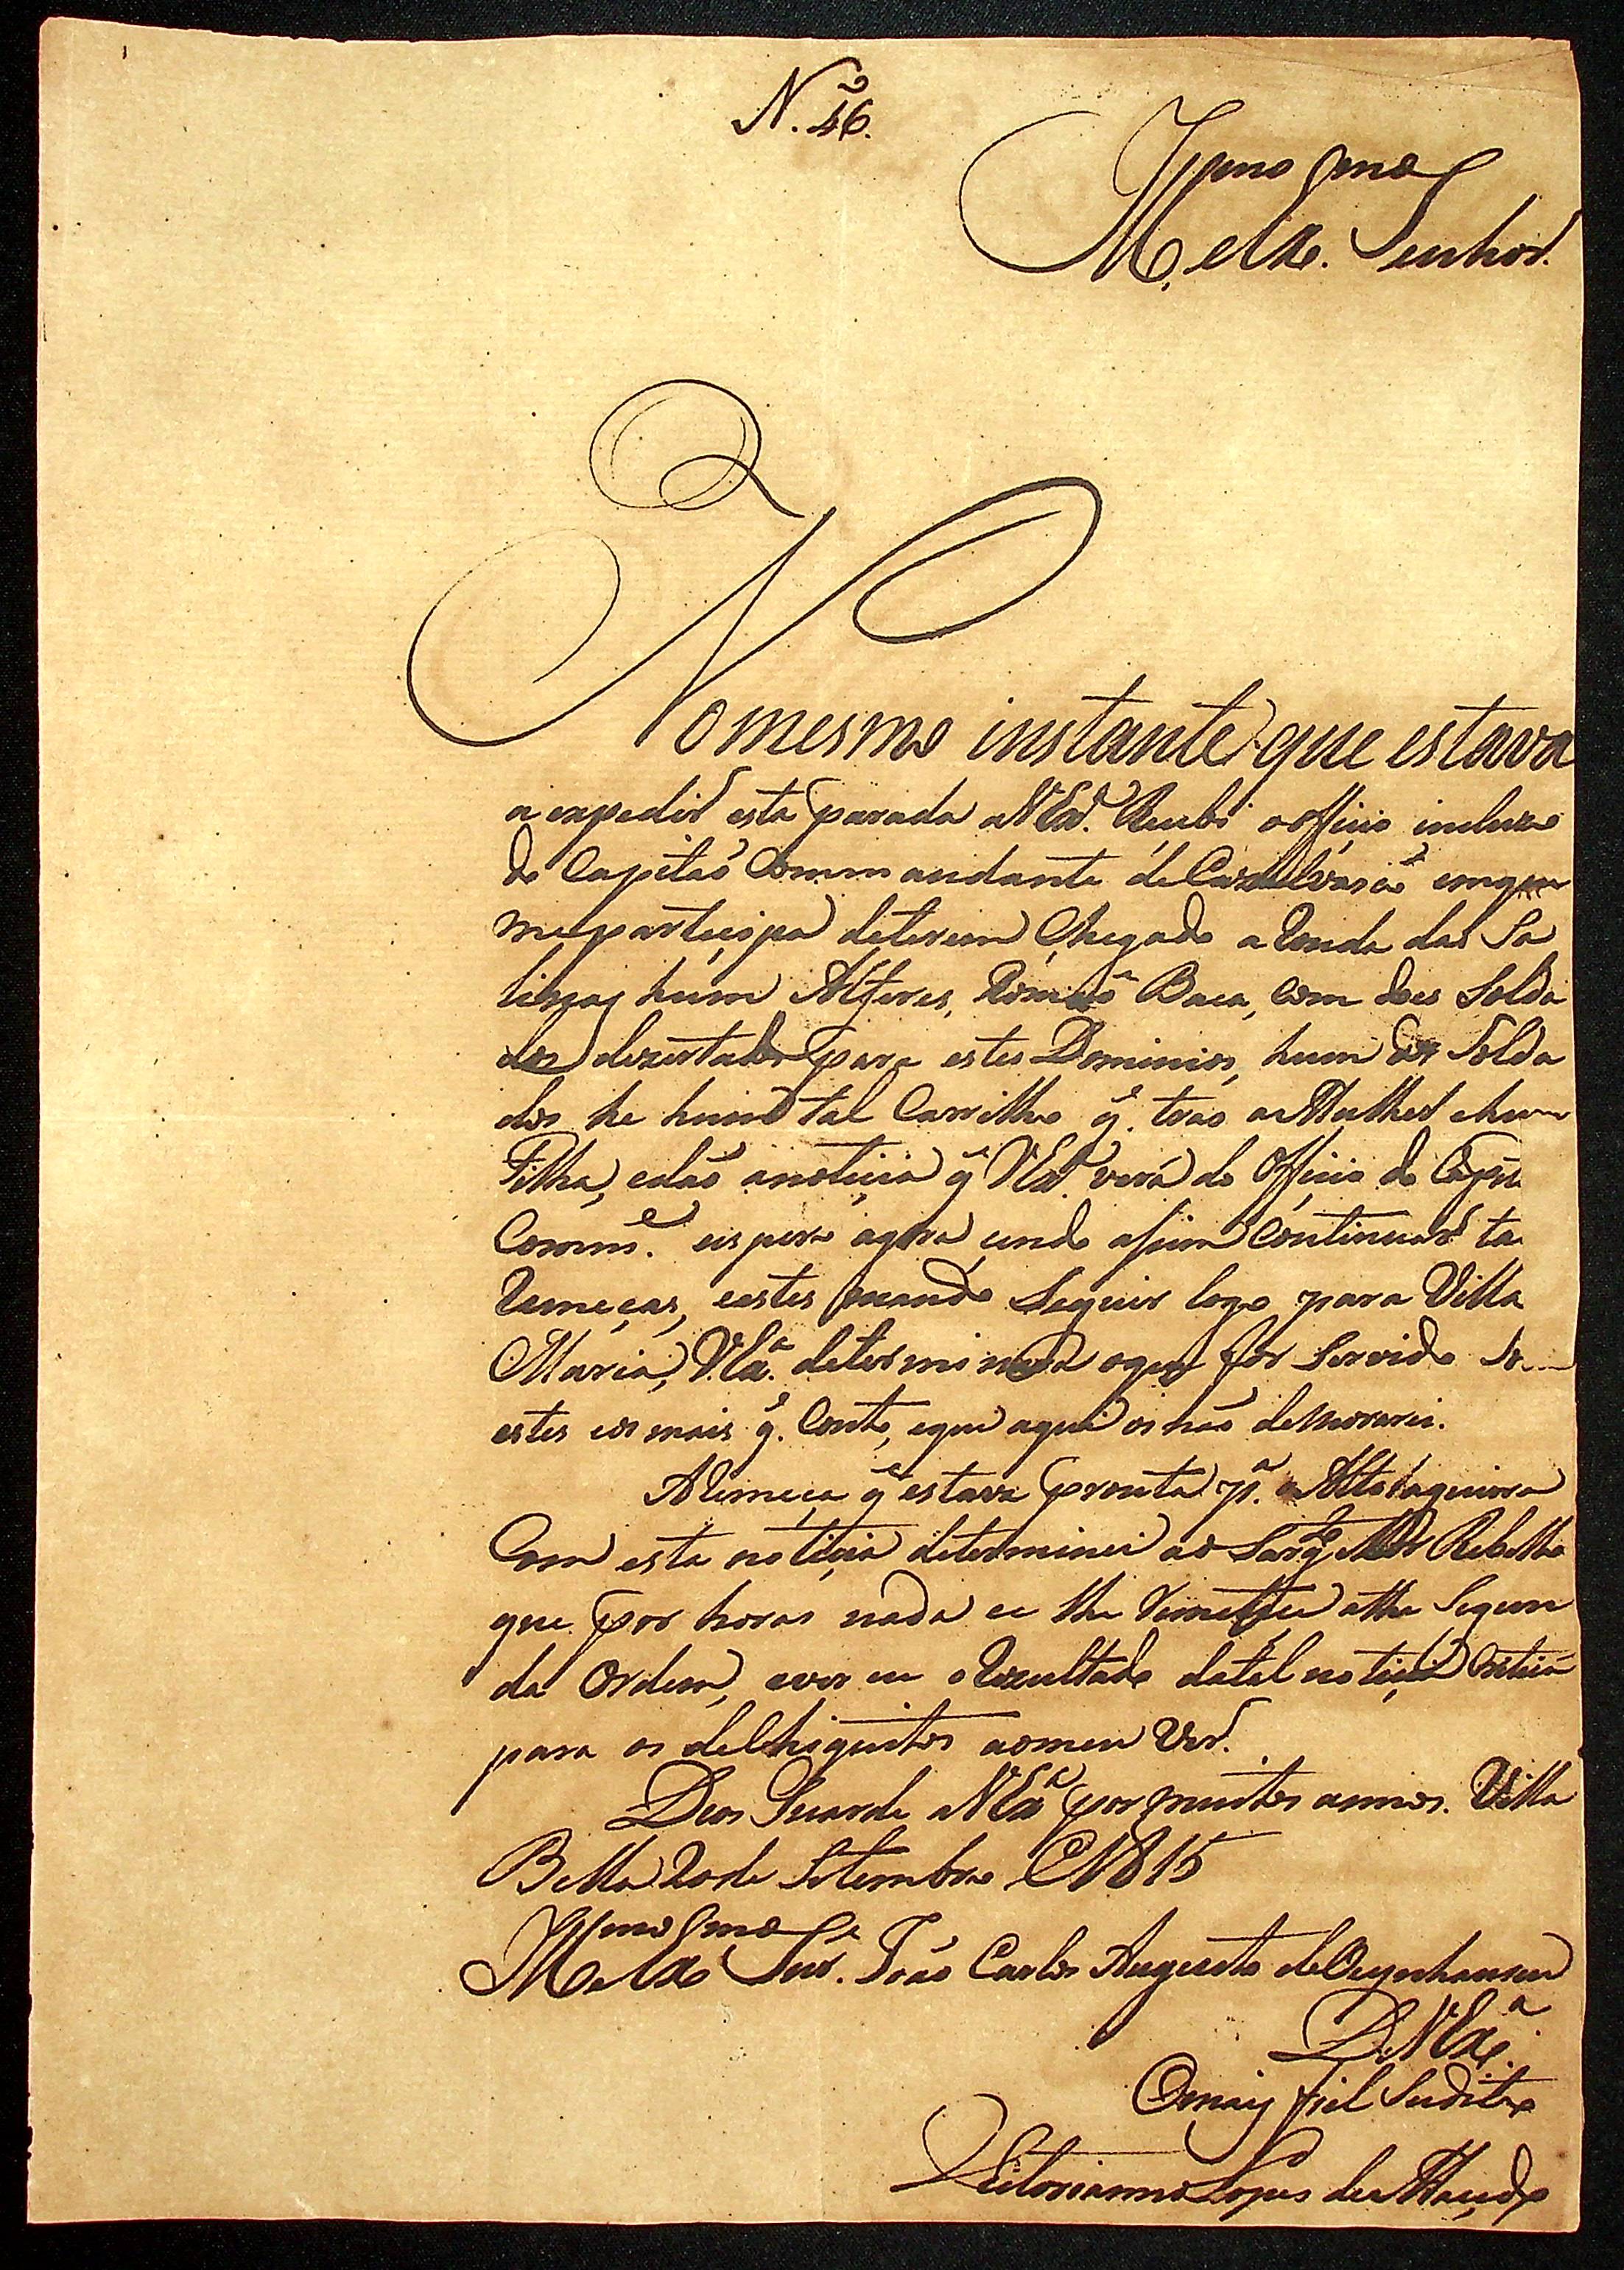 N.º 46.
Illmo Exmo
Senhor.
No mesmo instante que estava
a expedir esta parada a VEx.ª Recebi o officio incluzo
do Capitaõ Commandante de Cazalvasco em que
me participa deterem Chegado a Ronda das Sa
linas hum Alferes, Romaõ Baca, com dois Solda
dos dezertados para estes Dominios, hum dos Solda
dos he hum tal Carrilho q̃. tras a Mulher e huma
Filha, e daõ a noticia q̃ VEx.ª verá do Officio do Capm
Comm.e eu espero agora, cendo asim Continuar ta
Remeças, e estes mando Seguir logo para Villa
Maria, V.Ex.ª determinará o que for Servido
estes e os mais q̃. Conto, e que aqui os naõ demorarei.
A Remeça q̃ estava pronta p.ª Albuquerque
Com esta noticia determinei ao Sarg.to Mor Rebello
que por horas nada ce lhe Remetece athe Segun
da Ordem, e ver eu o Rezultado da tal noticia
para os de Chiquitos ao meu Ver.
Deos Guarde a VEx.ª por muitos annos. Villa
Bella 20 de Setembro de 1815
Illmo Exmo Snr. Joaõ Carlos Augusto de Oeynhausen
D. VEx.ª
O mais fiel Sudito
Victorianno Lopes de Macedo